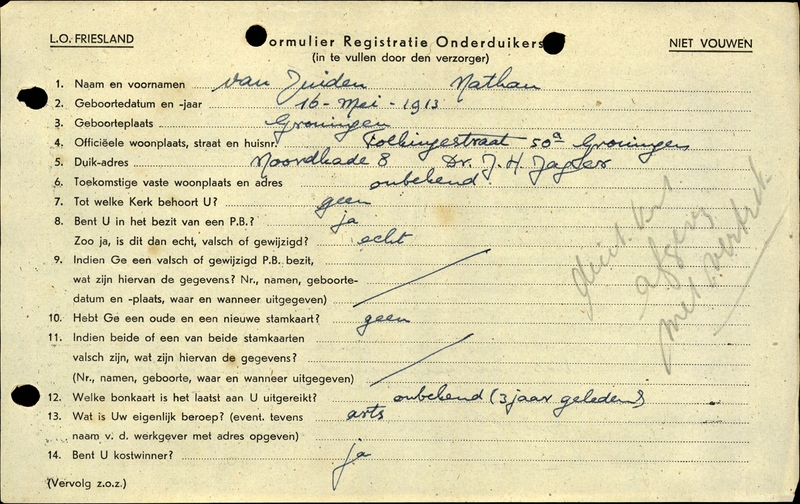 L.O. FRIESLAND
Formulier Registratie Onderduikers
NIET VOUWEN
(in te vullen door den verzorger)
1. Naam en voornamen van Juiden Nathan
2. Geboortedatum en -jaar 16 - Mei - 1913
3. Geboorteplaats Groningen
4. Officiëele woonplaats, straat en huisnr. Folkingestraat 50a Groningen
5. Duik-adres Noordkade 8 Dr. J. H. Jagler
6. Toekomstige vaste woonplaats en adres onbekend
7. Tot welke Kerk behoort U? geen
8. Bent U in het bezit van een P.B.? ja
Zoo ja, is dit dan echt, valsch of gewijzigd? echt
9. Indien Ge een valsch of gewijzigd P.B. bezit,
wat zijn hiervan de gegevens? Nr., namen, geboorte-
datum en -plaats, waar en wanneer uitgegeven)
10. Hebt Ge een oude en een nieuwe stamkaart? geen
11. Indien beide of een van beide stamkaarten
valsch zijn, wat zijn hiervan de gegevens?
(Nr., namen, geboorte, waar en wanneer uitgegeven)
12. Welke bonkaart is het laatst aan U uitgereikt? onbekend (3 jaar geleden)
13. Wat is Uw eigenlijk beroep? (event. tevens arts
naam v. d. werkgever met adres opgeven)
14. Bent U kostwinner? ja
(Vervolg z.o.z.)